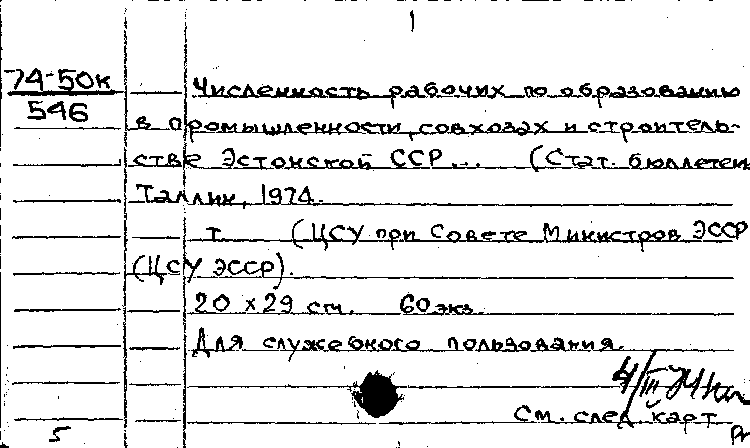 1
74-50к
546
Численность рабочих по образованию
в промышленности, совхозах и строитель-
стве Эстонской ССР... (Стат. бюллетень
Таллин, 1974.
т. (ЦСУ при Совете Министров ЭССР
(ЦСУ ЭССР).
20 х 29 см. 60 экз.
Для служебного пользования.
4/III 74
См. след. карт.
5